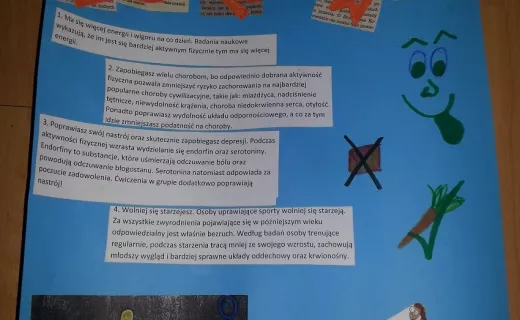 1. Ma się więcej energii i wigoru na co dzień. Badania naukowe
wykazują, że im jest się bardziej aktywnym fizycznie tym ma się więcej
energii.
2. Zapobiegasz wielu chorobom, bo odpowiednio dobrana aktywność
fizyczna pozwala zmniejszyć ryzyko zachorowania na najbardziej
popularne choroby cywilizacyjne, takie jak: miażdżyca, nadciśnienie
tętnicze, niewydolność krążenia, choroba niedokrwienna serca, otyłość.
Ponadto poprawiasz wydolność układu odpornościowego, a co za tym
idzie zmniejszasz podatność na choroby.
3. Poprawiasz swój nastrój oraz skutecznie zapobiegasz depresji. Podczas
aktywności fizycznej wzrasta wydzielanie się endorfin oraz serotoniny.
Endorfiny to substancje, które uśmierzają odczuwanie bólu oraz
powodują odczuwanie błogostanu. Serotonina natomiast odpowiada za
poczucie zadowolenia. Ćwiczenia w grupie dodatkowo poprawiają
nastrój!
4. Wolniej się starzejesz. Osoby uprawiające sporty wolniej się starzeją.
Za wszystkie zwyrodnienia pojawiające się w późniejszym wieku
odpowiedzialny jest właśnie bezruch. Według badań osoby trenujące
regularnie, podczas starzenia tracą mniej ze swojego wzrostu, zachowują
młodszy wygląd i bardziej sprawne układy oddechowy oraz krwionośny.